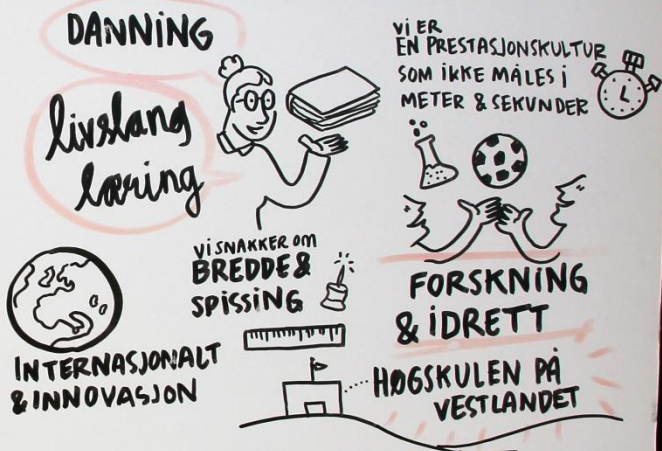 DANNING
livslang
læring
Vi ER
EN PRESTASJONSKULTUR
SOM iKKE MÅLES i
METER & SEKUNDER
Vi SNAKKER OM
BREDDE &
SPiSSiNG
FORSKNiNG
& iDRETT
INTERNASJONALT
& INNOVASJON
HØGSKULEN PÅ
VESTLANDET